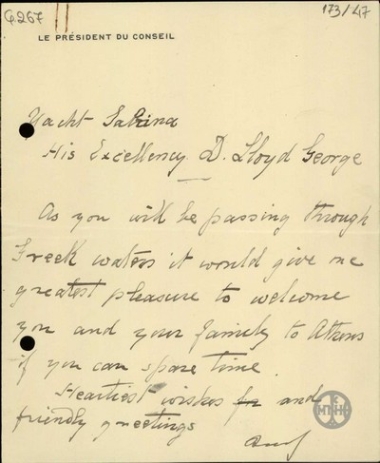 G.267
173/47
LE PRÉSIDENT DU CONSEIL
Yacht Sabrina
His Excellency D. Lloyd George
As you will be passing through
Greek waters it would give me
greatest pleasure to welcome
you and your family to Athens
if you can spare time.
Heartiest wishes and
friendly greetings